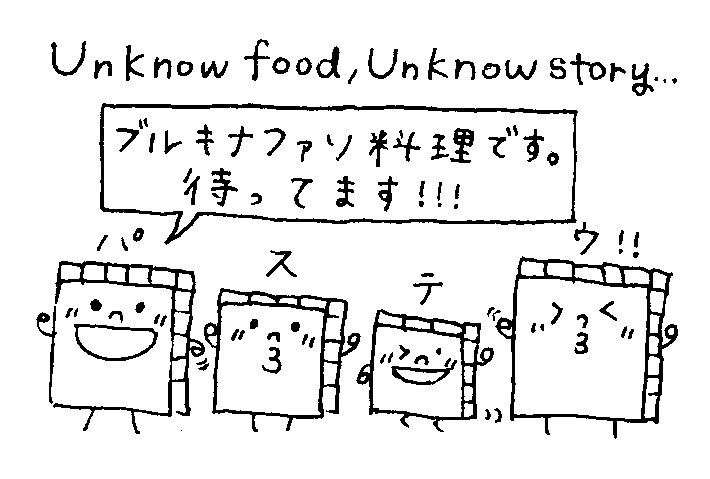 Unknow food, Unknow story...
ブルキナファソ料理です。
待ってます!!!
パ ス テ ウ!!